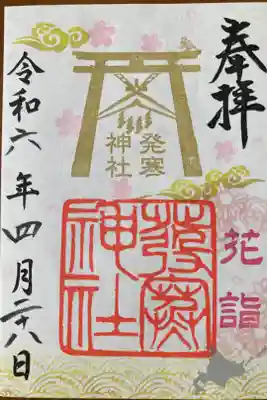 奉拝
発寒
神社
発寒
神社
花詣
令和六年四月二十八日